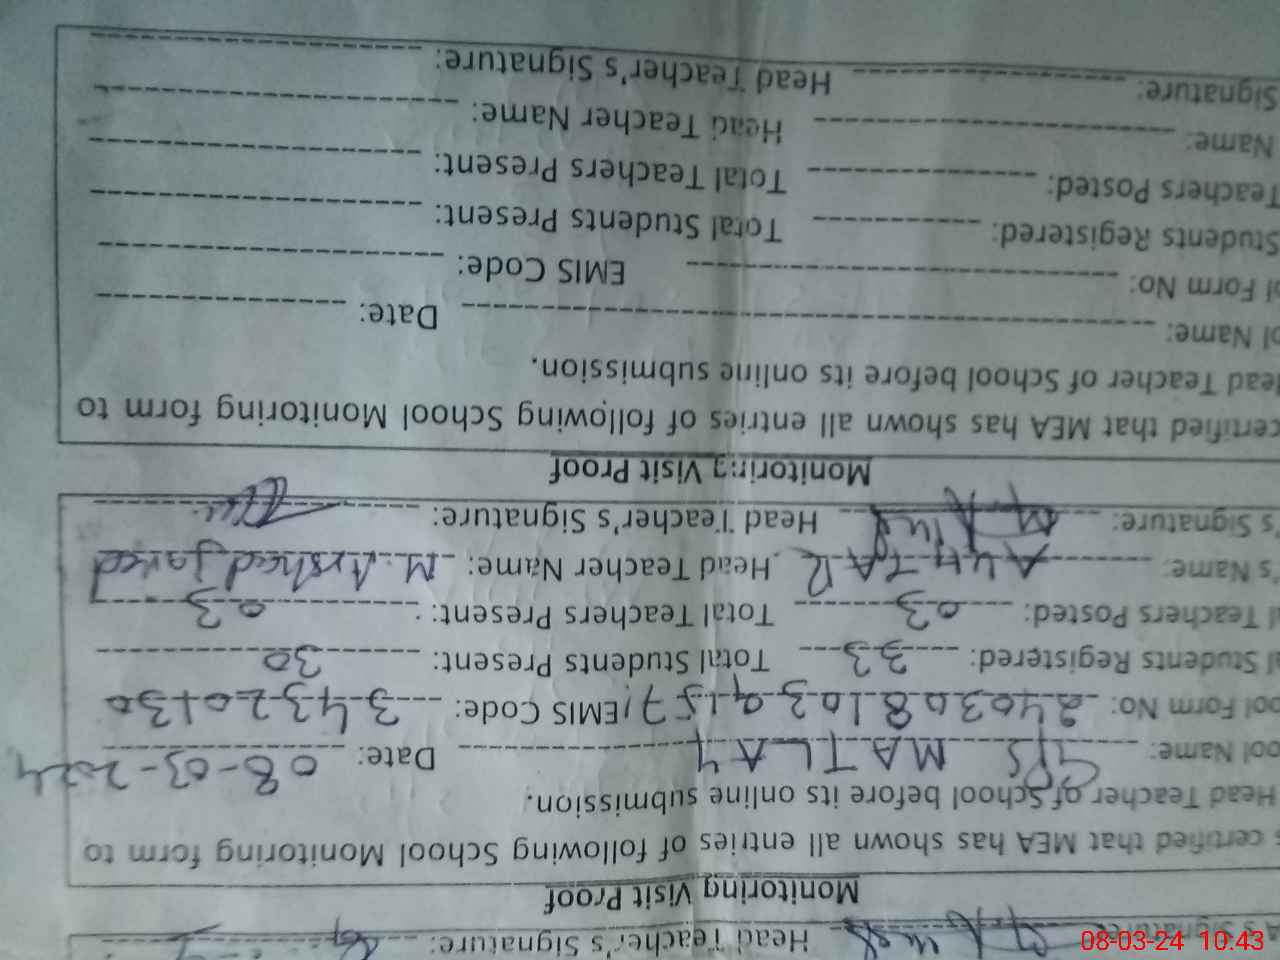 A's Signature: Head Teacher's Signature:
Monitoring Visit Proof
certified that MEA has shown all entries of following School Monitoring form to
Head Teacher of School before its online submission.
ool Name: GPS MATLAY Date: 08-03-2024
ool Form No: 2403081039157 EMIS Code: 34320130
al Students Registered: 33 Total Students Present: 30
l Teachers Posted: 03 Total Teachers Present: 03
's Name: Head Teacher Name: M. Arshad javed
's Signature: Head Teacher's Signature:
Monitoring Visit Proof
certified that MEA has shown all entries of following School Monitoring form to
Head Teacher of School before its online submission.
ol Name: Date:
ol Form No: EMIS Code:
Students Registered: Total Students Present:
Teachers Posted: Total Teachers Present:
Name: Head Teacher Name:
Signature: Head Teacher's Signature:
08-03-24 10:43